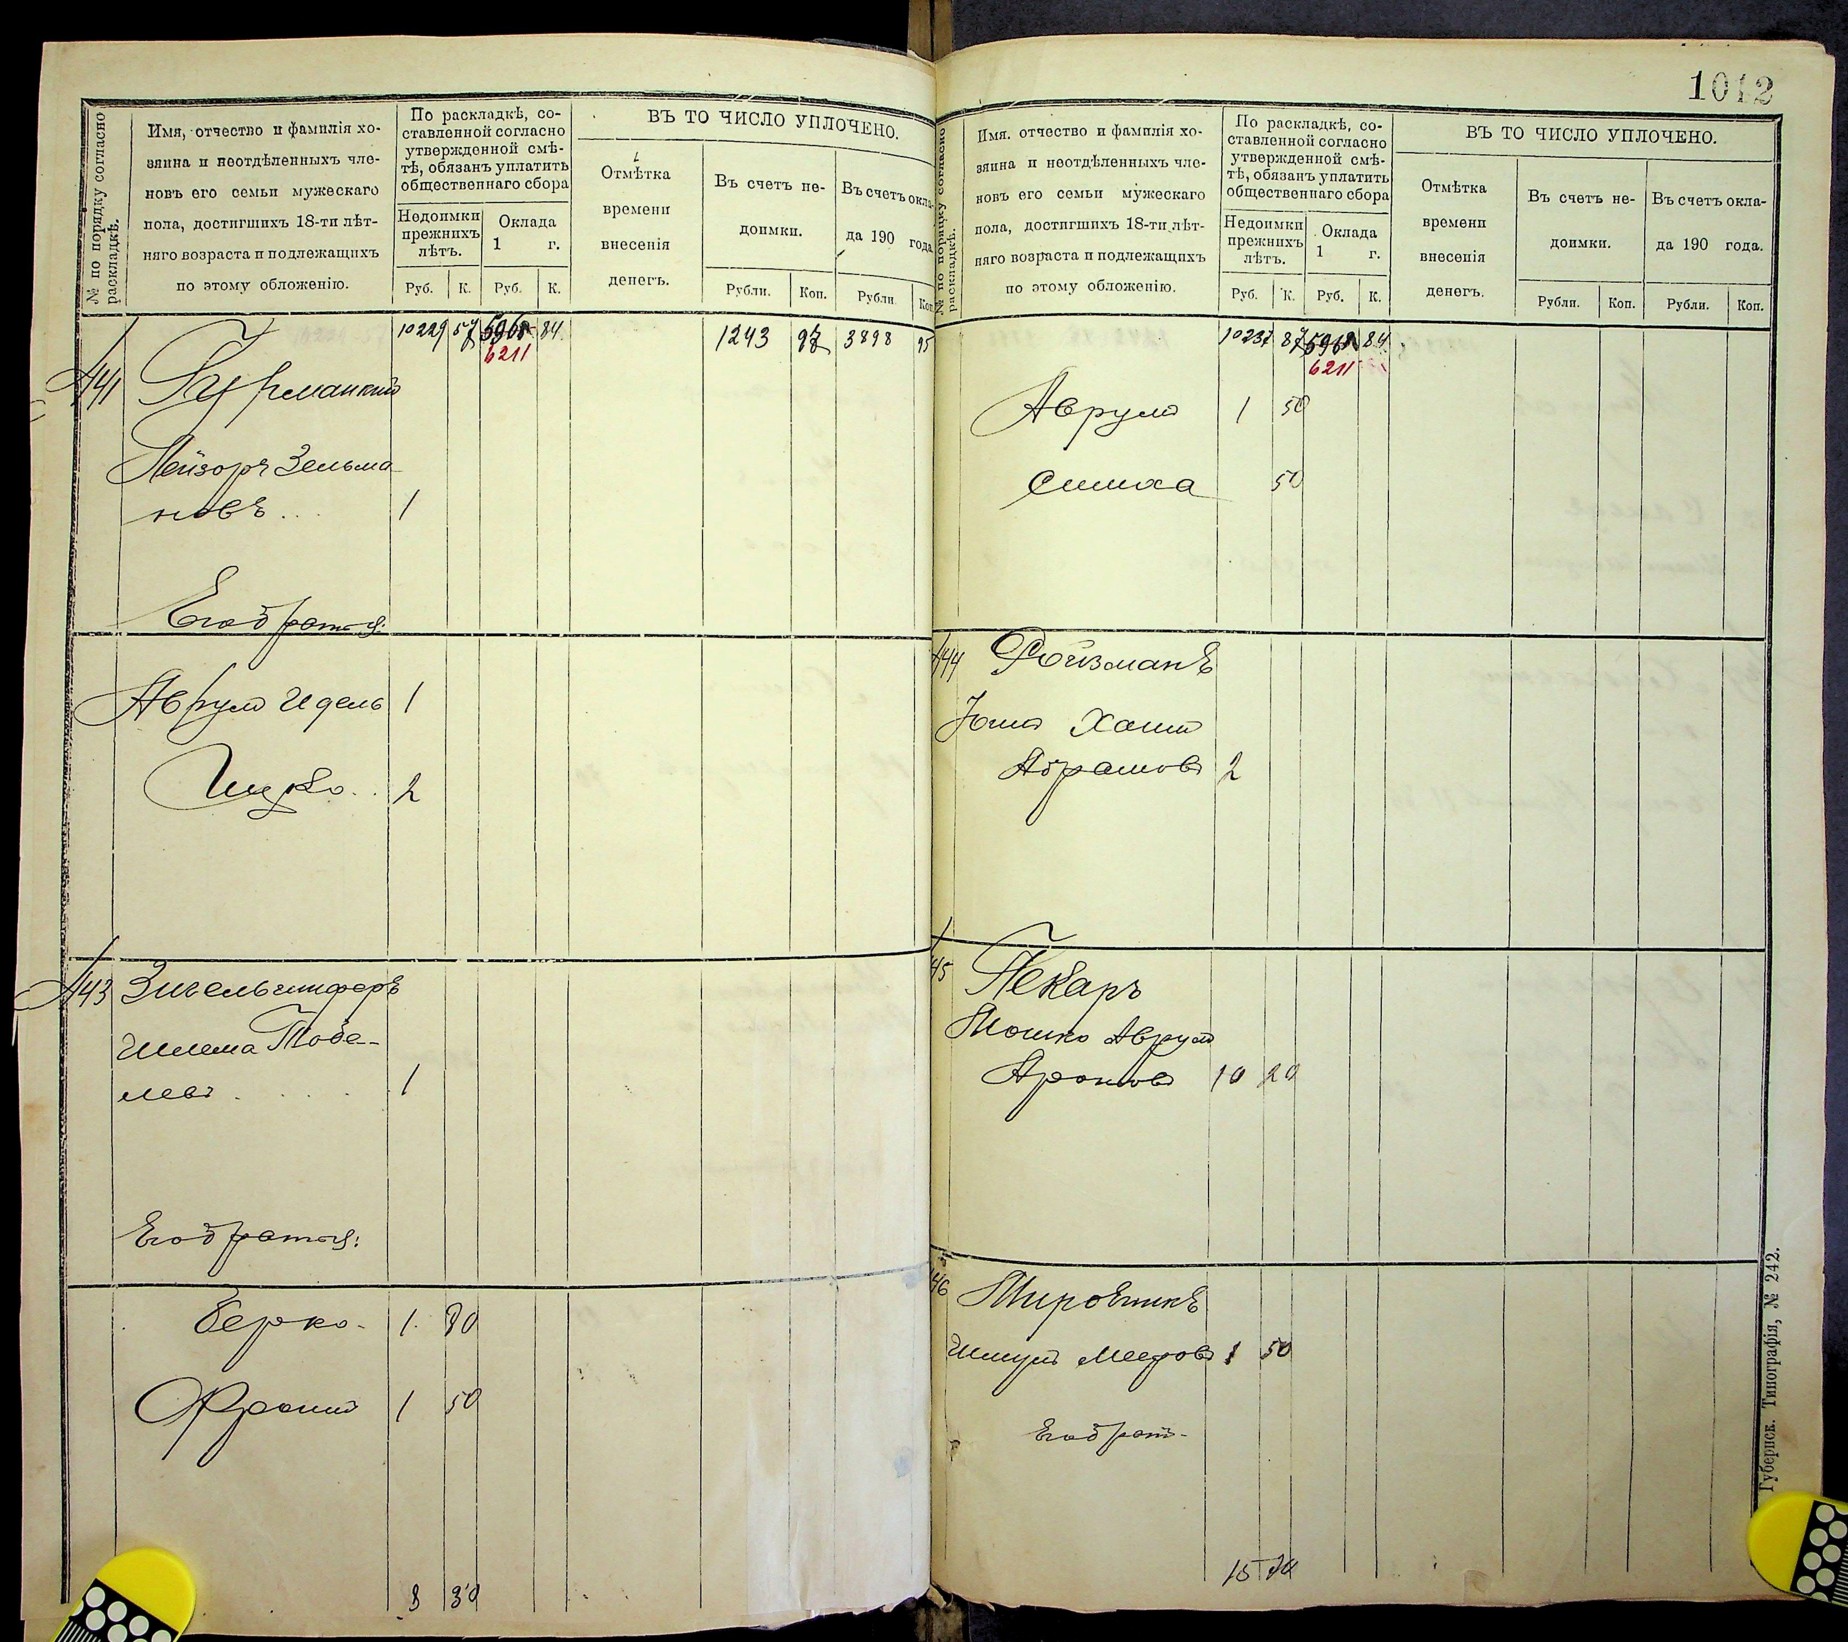 № по порядку согласно раскладкѣ.
Имя, отчество и фамилія хо-
зяина и неотдѣленныхъ чле-
новъ его семьи мужескаго
пола, достигшихъ 18-ти лѣт-
няго возраста и подлежащихъ
по этому обложенію.
По раскладкѣ, со-
ставленной согласно
утвержденной смѣ-
тѣ, обязанъ уплатить
общественнаго сбора
Недоимки прежнихъ лѣтъ.
Оклада 1 г.
Руб. К. Руб. К.
ВЪ ТО ЧИСЛО УПЛОЧЕНО.
Отмѣтка
времени
внесенія
денегъ.
Въ счетъ не-
доимки.
Рубли. Коп.
Въ счетъ окла-
да 190 года
Рубли Коп
10229 57 5968 84 1243 97 3898 95
6211
441
Лейзоръ Зельма-
новъ... 1
Его братья:
Аврумъ Идель 1
Ицко.. 2
443 Зигельшиферъ
Шлема Тове-
левъ.... 1
Его братья:
Берко- 1. 80
Фроимъ 1 50
8 30
1012
№ по порядку согласно раскладкѣ.
Имя, отчество и фамилія хо-
зяина и неотдѣленныхъ чле-
новъ его семьи мужескаго
пола, достигшихъ 18-ти лѣт-
няго возраста и подлежащихъ
по этому обложенію.
По раскладкѣ, со-
ставленной согласно
утвержденной смѣ-
тѣ, обязанъ уплатить
общественнаго сбора
Недоимки прежнихъ лѣтъ.
Оклада 1 г.
Руб. К. Руб. К.
ВЪ ТО ЧИСЛО УПЛОЧЕНО.
Отмѣтка
времени
внесенія
денегъ.
Въ счетъ не-
доимки.
Рубли. Коп.
Въ счетъ окла-
да 190 года.
Рубли. Коп.
10237 87 5968 84
6211
Аврумъ 1 50
Симха 50
444 Ройзманъ
Хаимъ
Абрамовъ 2
45 Пекаръ
Мошко Аврумъ
Ароновъ 10 20
46 Мировникъ
Шмулъ Мееровъ 1 50
Его братъ-
15 70
Губернск. Типографія, № 242.